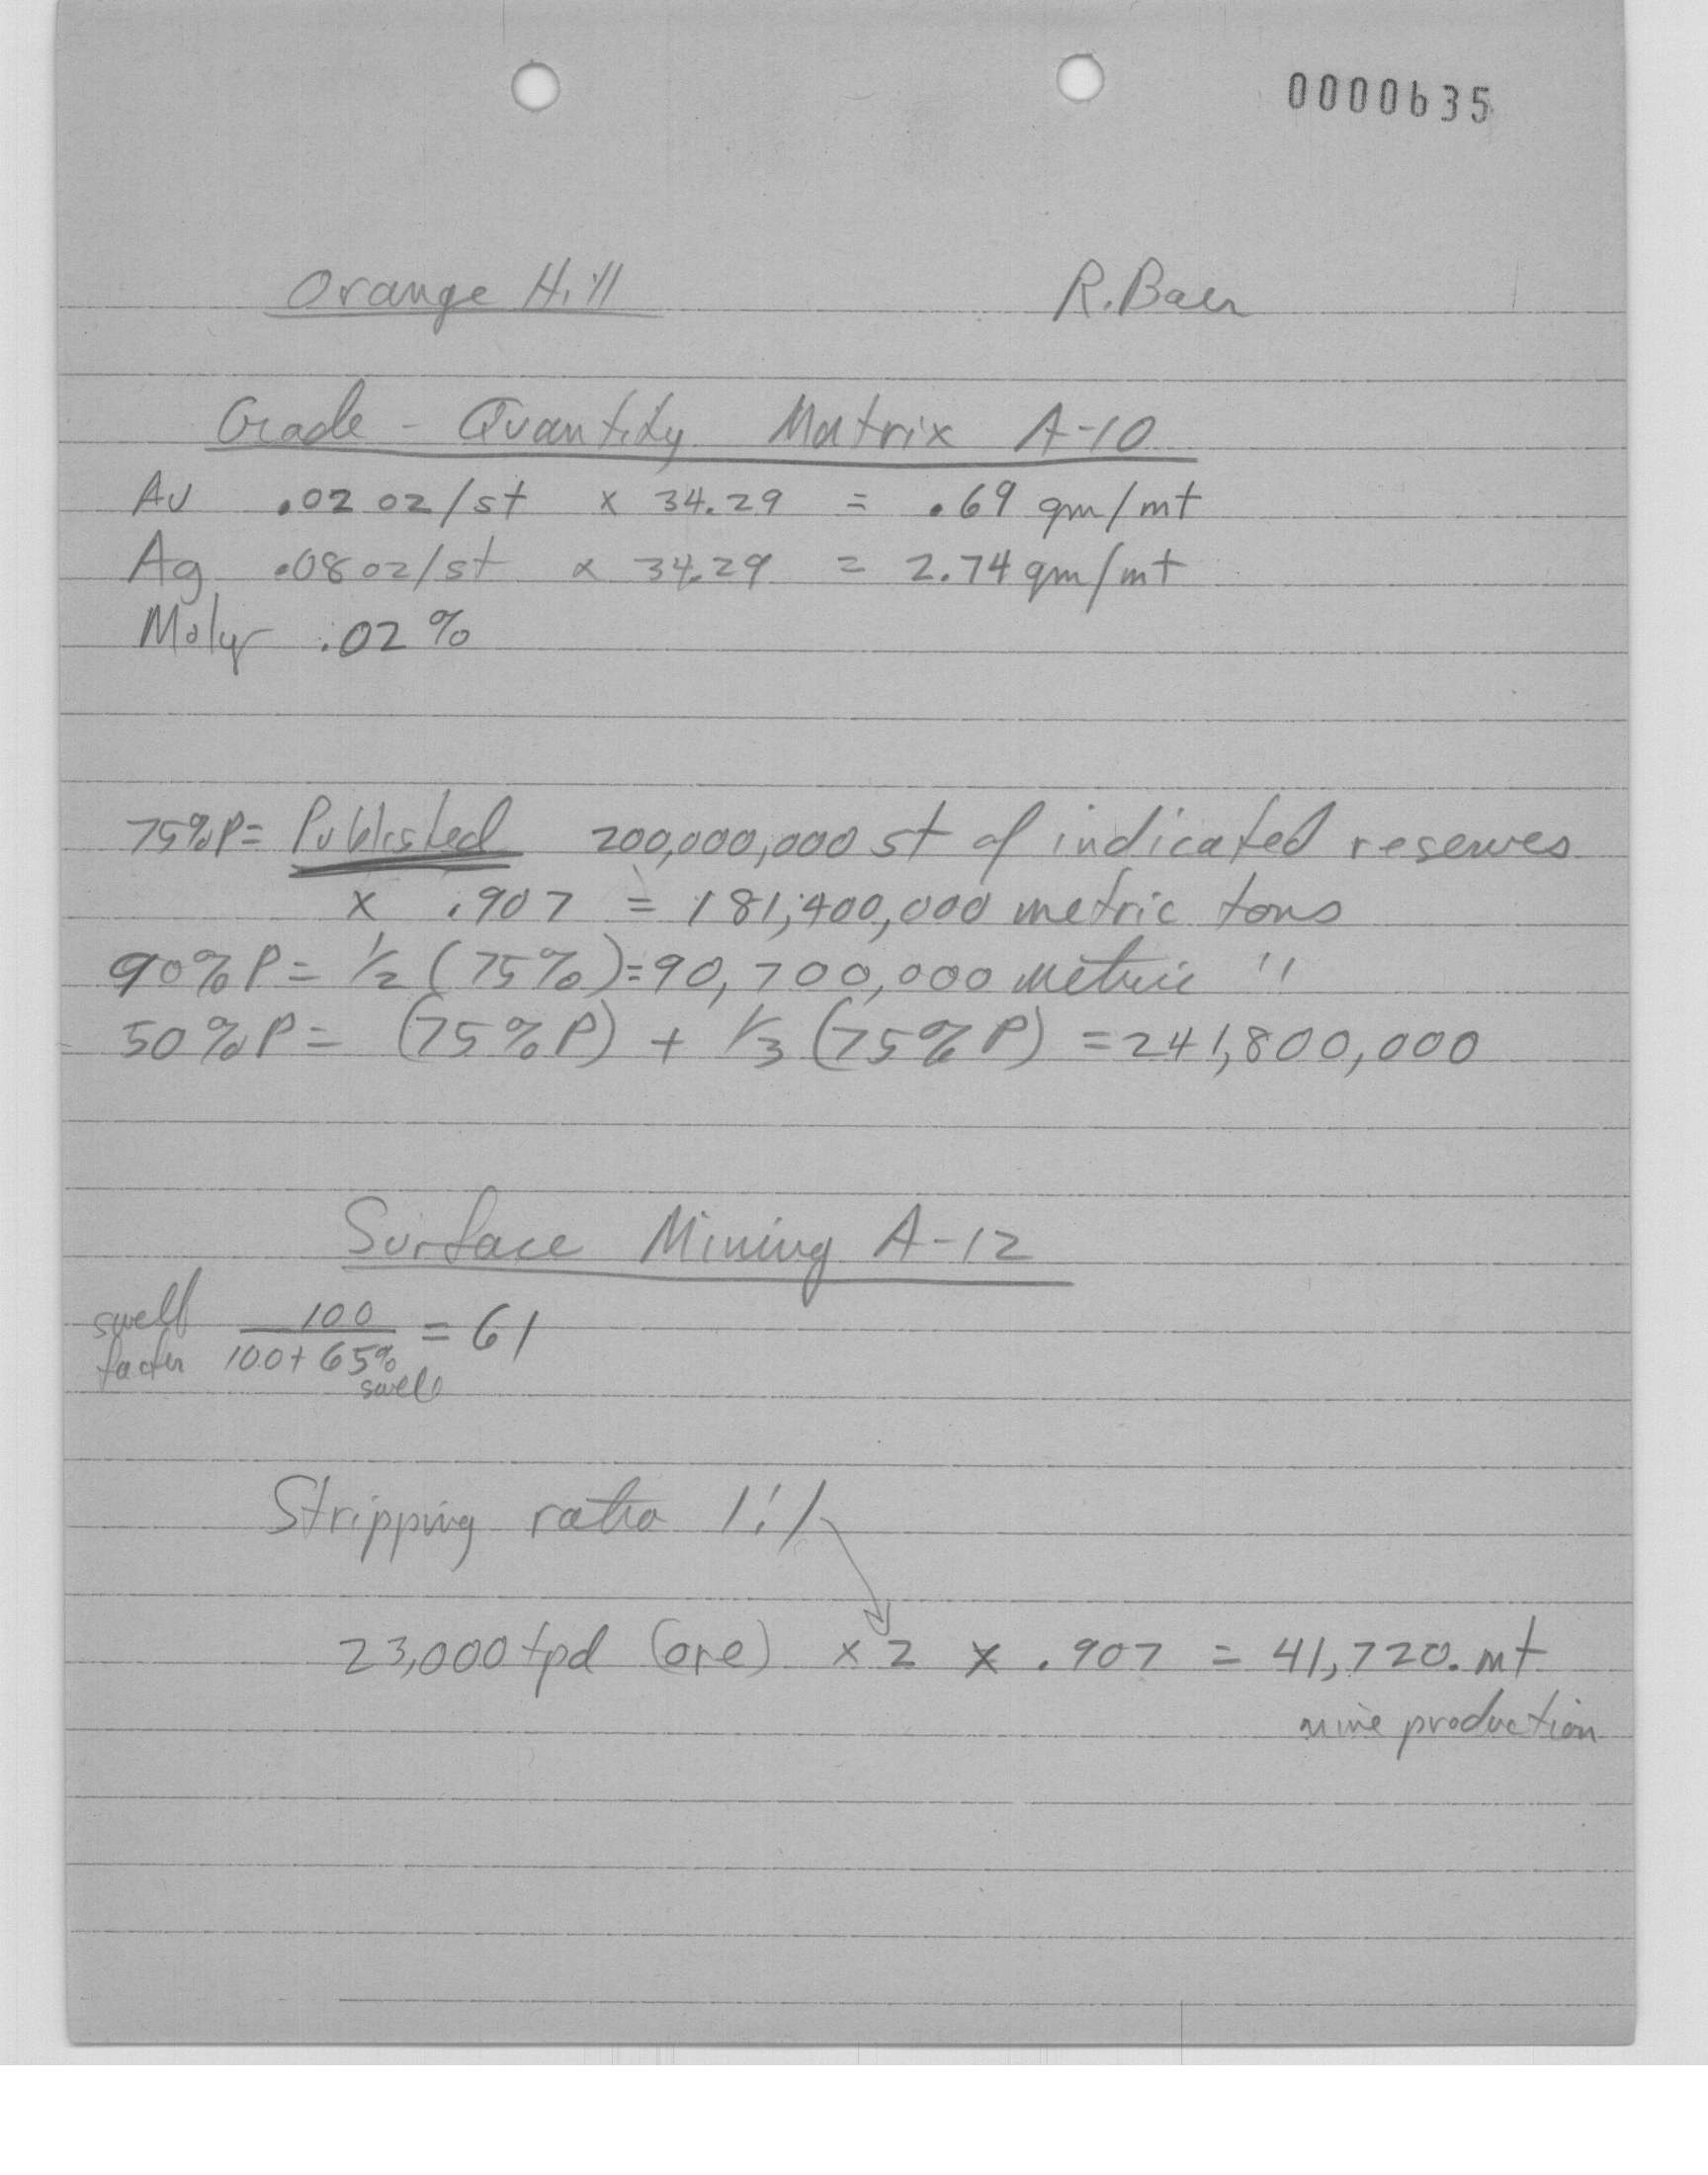 0000635
Orange Hill R. Baer
Grade - Quantity Matrix A-10
Au .02 oz/st x 34.29 = .69 gm/mt
Ag .08 oz/st x 34.29 = 2.74 gm/mt
Moly .02 %
75%P= Published 200,000,000 st of indicated reserves
x .907 = 181,400,000 metric tons
90%P = 1/2 (75%)=90,700,000 metric "
50%P = (75%P) + 1/3 (75%P) = 241,800,000
Surface Mining A-12
swell 100 = 61
factor 100+65%
swell
Stripping ratio 1:1
23,000 tpd (ore) x 2 x .907 = 41,720. mt
mine production